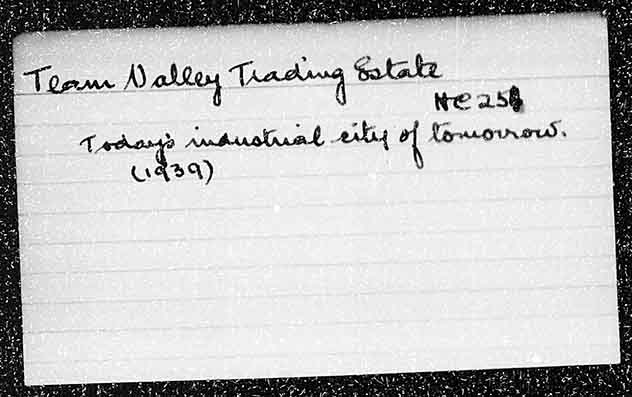 Team Valley Trading Estate
HC 256
Today's industrial city of tomorrow.
(1939)